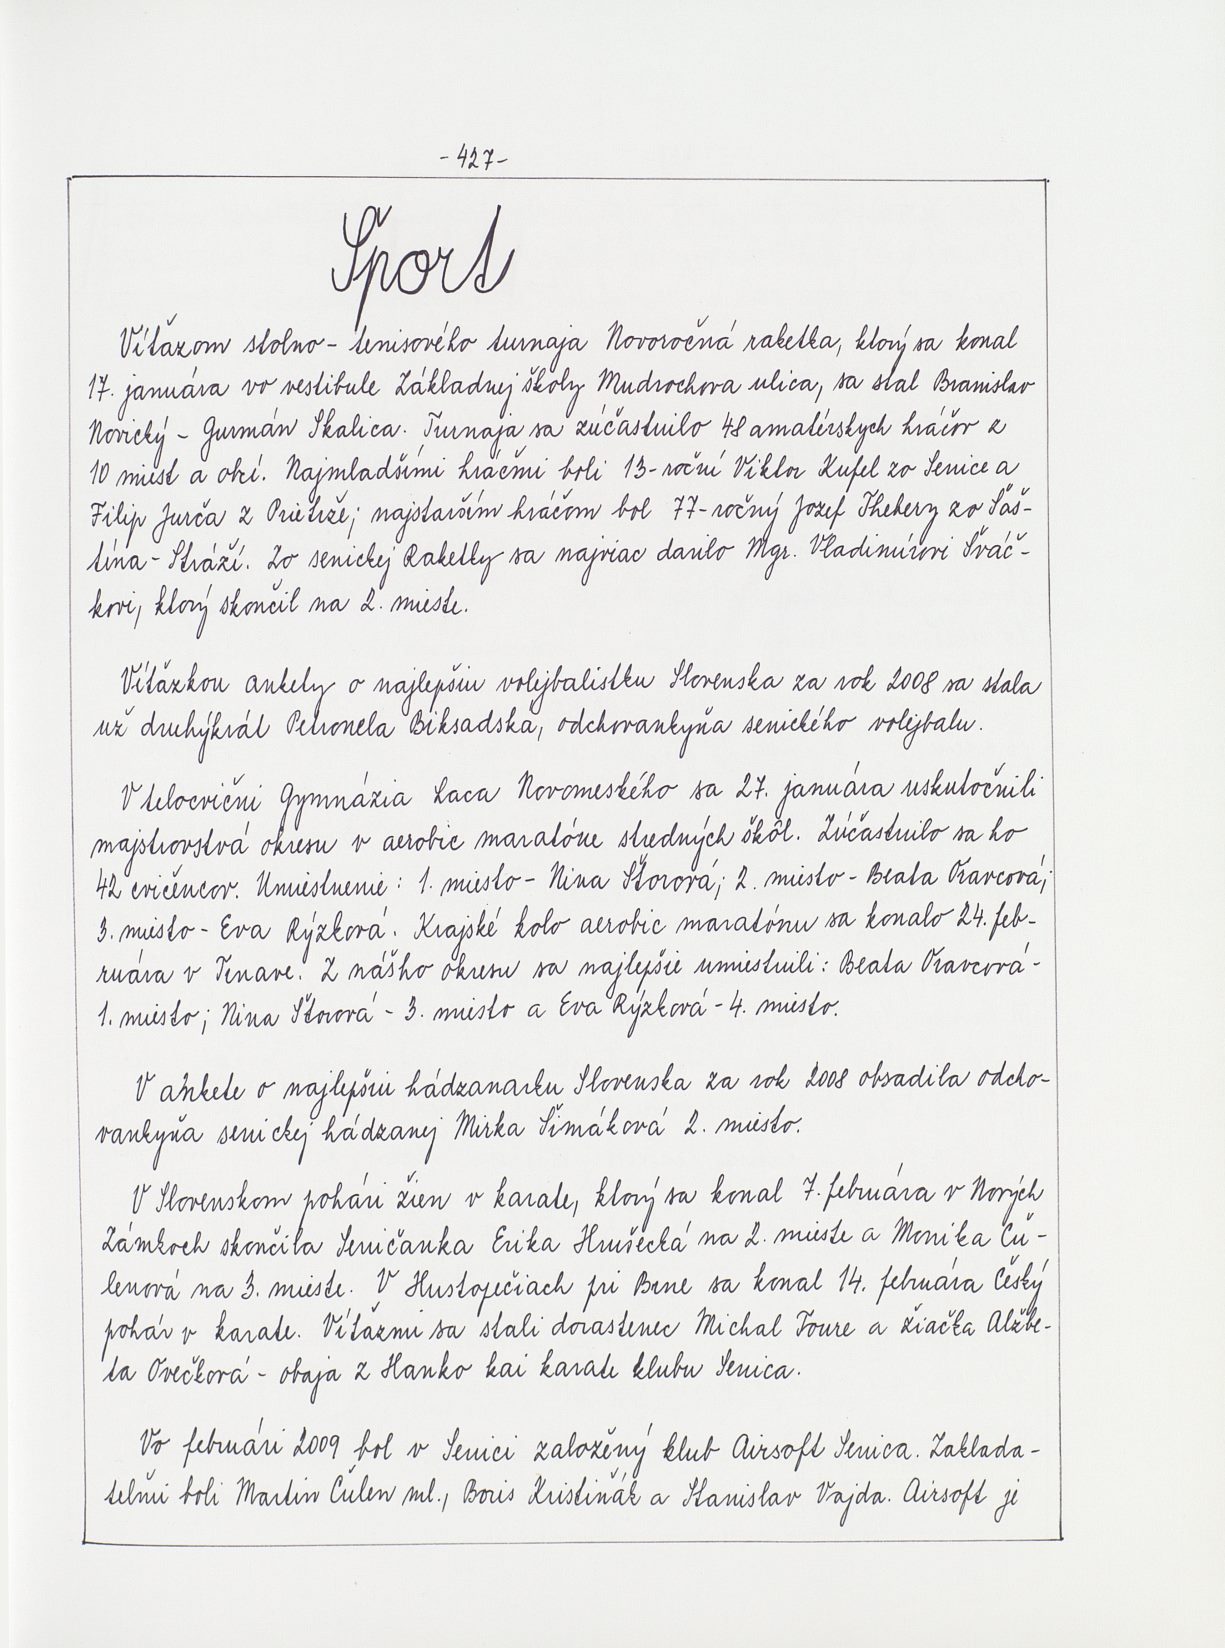 - 427 -
Šport
Víťazom stolno - tenisového turnaja Novoročná raketka, ktorý sa konal
17. januára vo vestibule Základnej školy Mudrochova ulica, sa stal Branislav
Novický - Gurmán Skalica. Turnaja sa zúčastnilo 48 amatérskych hráčov z
10 miest a obcí. Najmladšími hráčmi boli 13-roční Viktor Kufel zo Senice a
Filip Jurča z Prietrže; najstarším hráčom bol 77-ročný Jozef Thebery zo Šaš-
tína - Stráží. Zo senickej Raketky sa najviac darilo Mgr. Vladimírovi Šváč-
kovi, ktorý skončil na 2. mieste.
Víťazkou ankety o najlepšiu volejbalistku Slovenska za rok 2008 sa stala
už druhýkrát Petronela Biksadská, odchovankyňa senického volejbalu.
V telocvični Gymnázia Laca Novomeského sa 27. januára uskutočnili
majstrovstvá okresu v aerobic maratóne stredných škôl. Zúčastnilo sa ho
42 cvičencov. Umiestnenie: 1. miesto - Nina Štorová; 2. miesto - Beata Oravcová;
3. miesto - Eva Rýzková. Krajské kolo aerobic maratónu sa konalo 24. feb-
ruára v Trnave. Z nášho okresu sa najlepšie umiestnili: Beata Oravcová -
1. miesto; Nina Štorová - 3. miesto a Eva Rýzková - 4. miesto.
V ankete o najlepšiu hádzanárku Slovenska za rok 2008 obsadila odcho-
vankyňa senickej hádzanej Mirka Šimáková 2. miesto.
V Slovenskom pohári žien v karate, ktorý sa konal 7. februára v Nových
Zámkoch skončila Seničanka Erika Hrušecká na 2. mieste a Monika Ču-
lenová na 3. mieste. V Hustopečiach pri Brne sa konal 14. februára Český
pohár v karate. Víťazmi sa stali dorastenec Michal Toure a žiačka Alžbe-
ta Ovečková - obaja z Hanko kai karate klubu Senica.
Vo februári 2009 bol v Senici založený klub Airsoft Senica. Zaklada-
teľmi boli Martin Čulen ml., Boris Kristiňák a Stanislav Vajda. Airsoft je